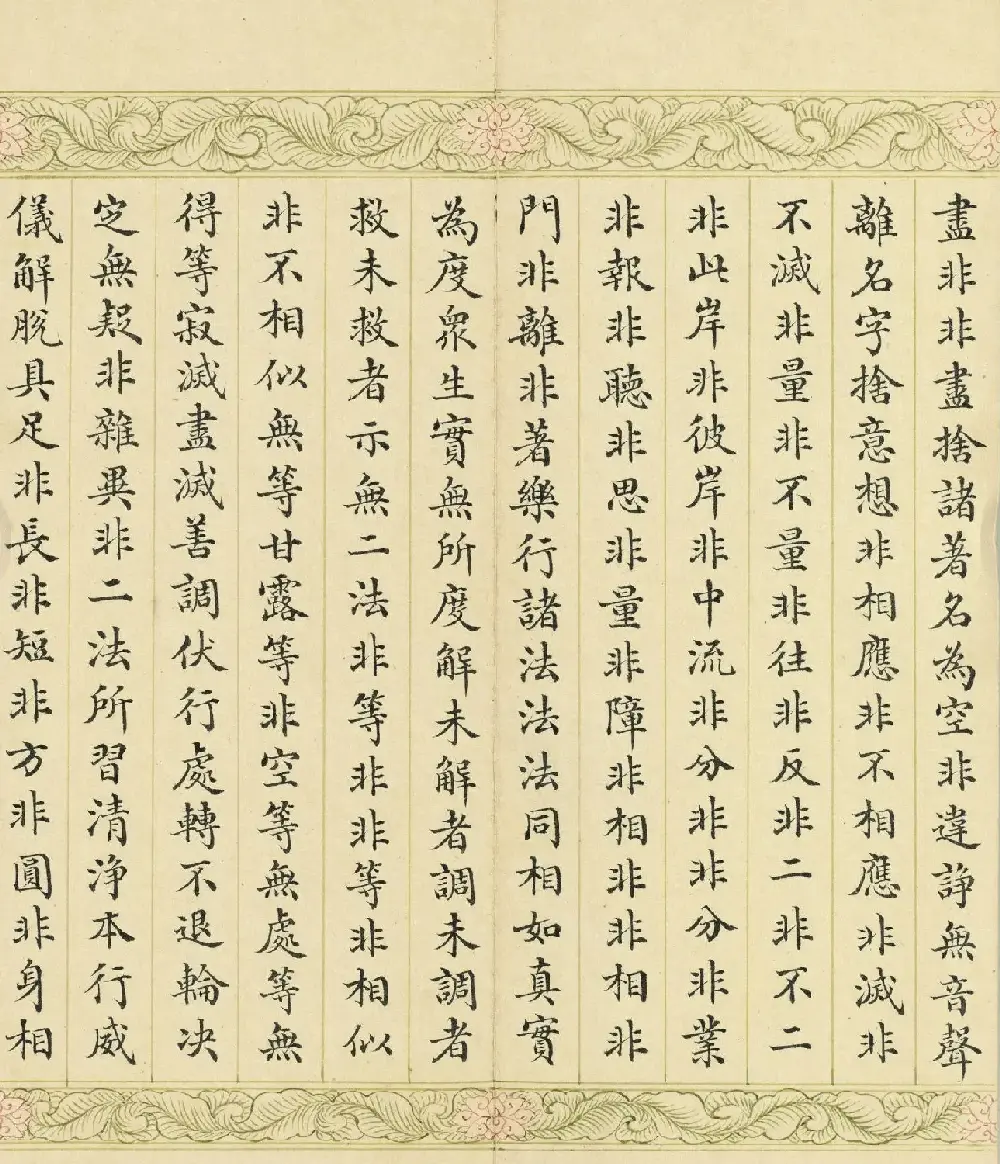 盡非非盡捨諸著名為空非違諍無音聲
離名字捨意想非相應非不相應非滅非
不滅非量非不量非往非反非二非不二
非此岸非彼岸非中流非分非非分非業
非報非聽非思非量非障非相非非相非
門非離非著樂行諸法法法同相如真實
為度眾生實無所度解未解者調未調者
救未救者示無二法非等非非等非相似
非不相似無等甘露等非空等無處等無
得等寂滅盡滅善調伏行處轉不退輪決
定無疑非雜異非二法所習清淨本行威
儀解脫具足非長非短非方非圓非身相